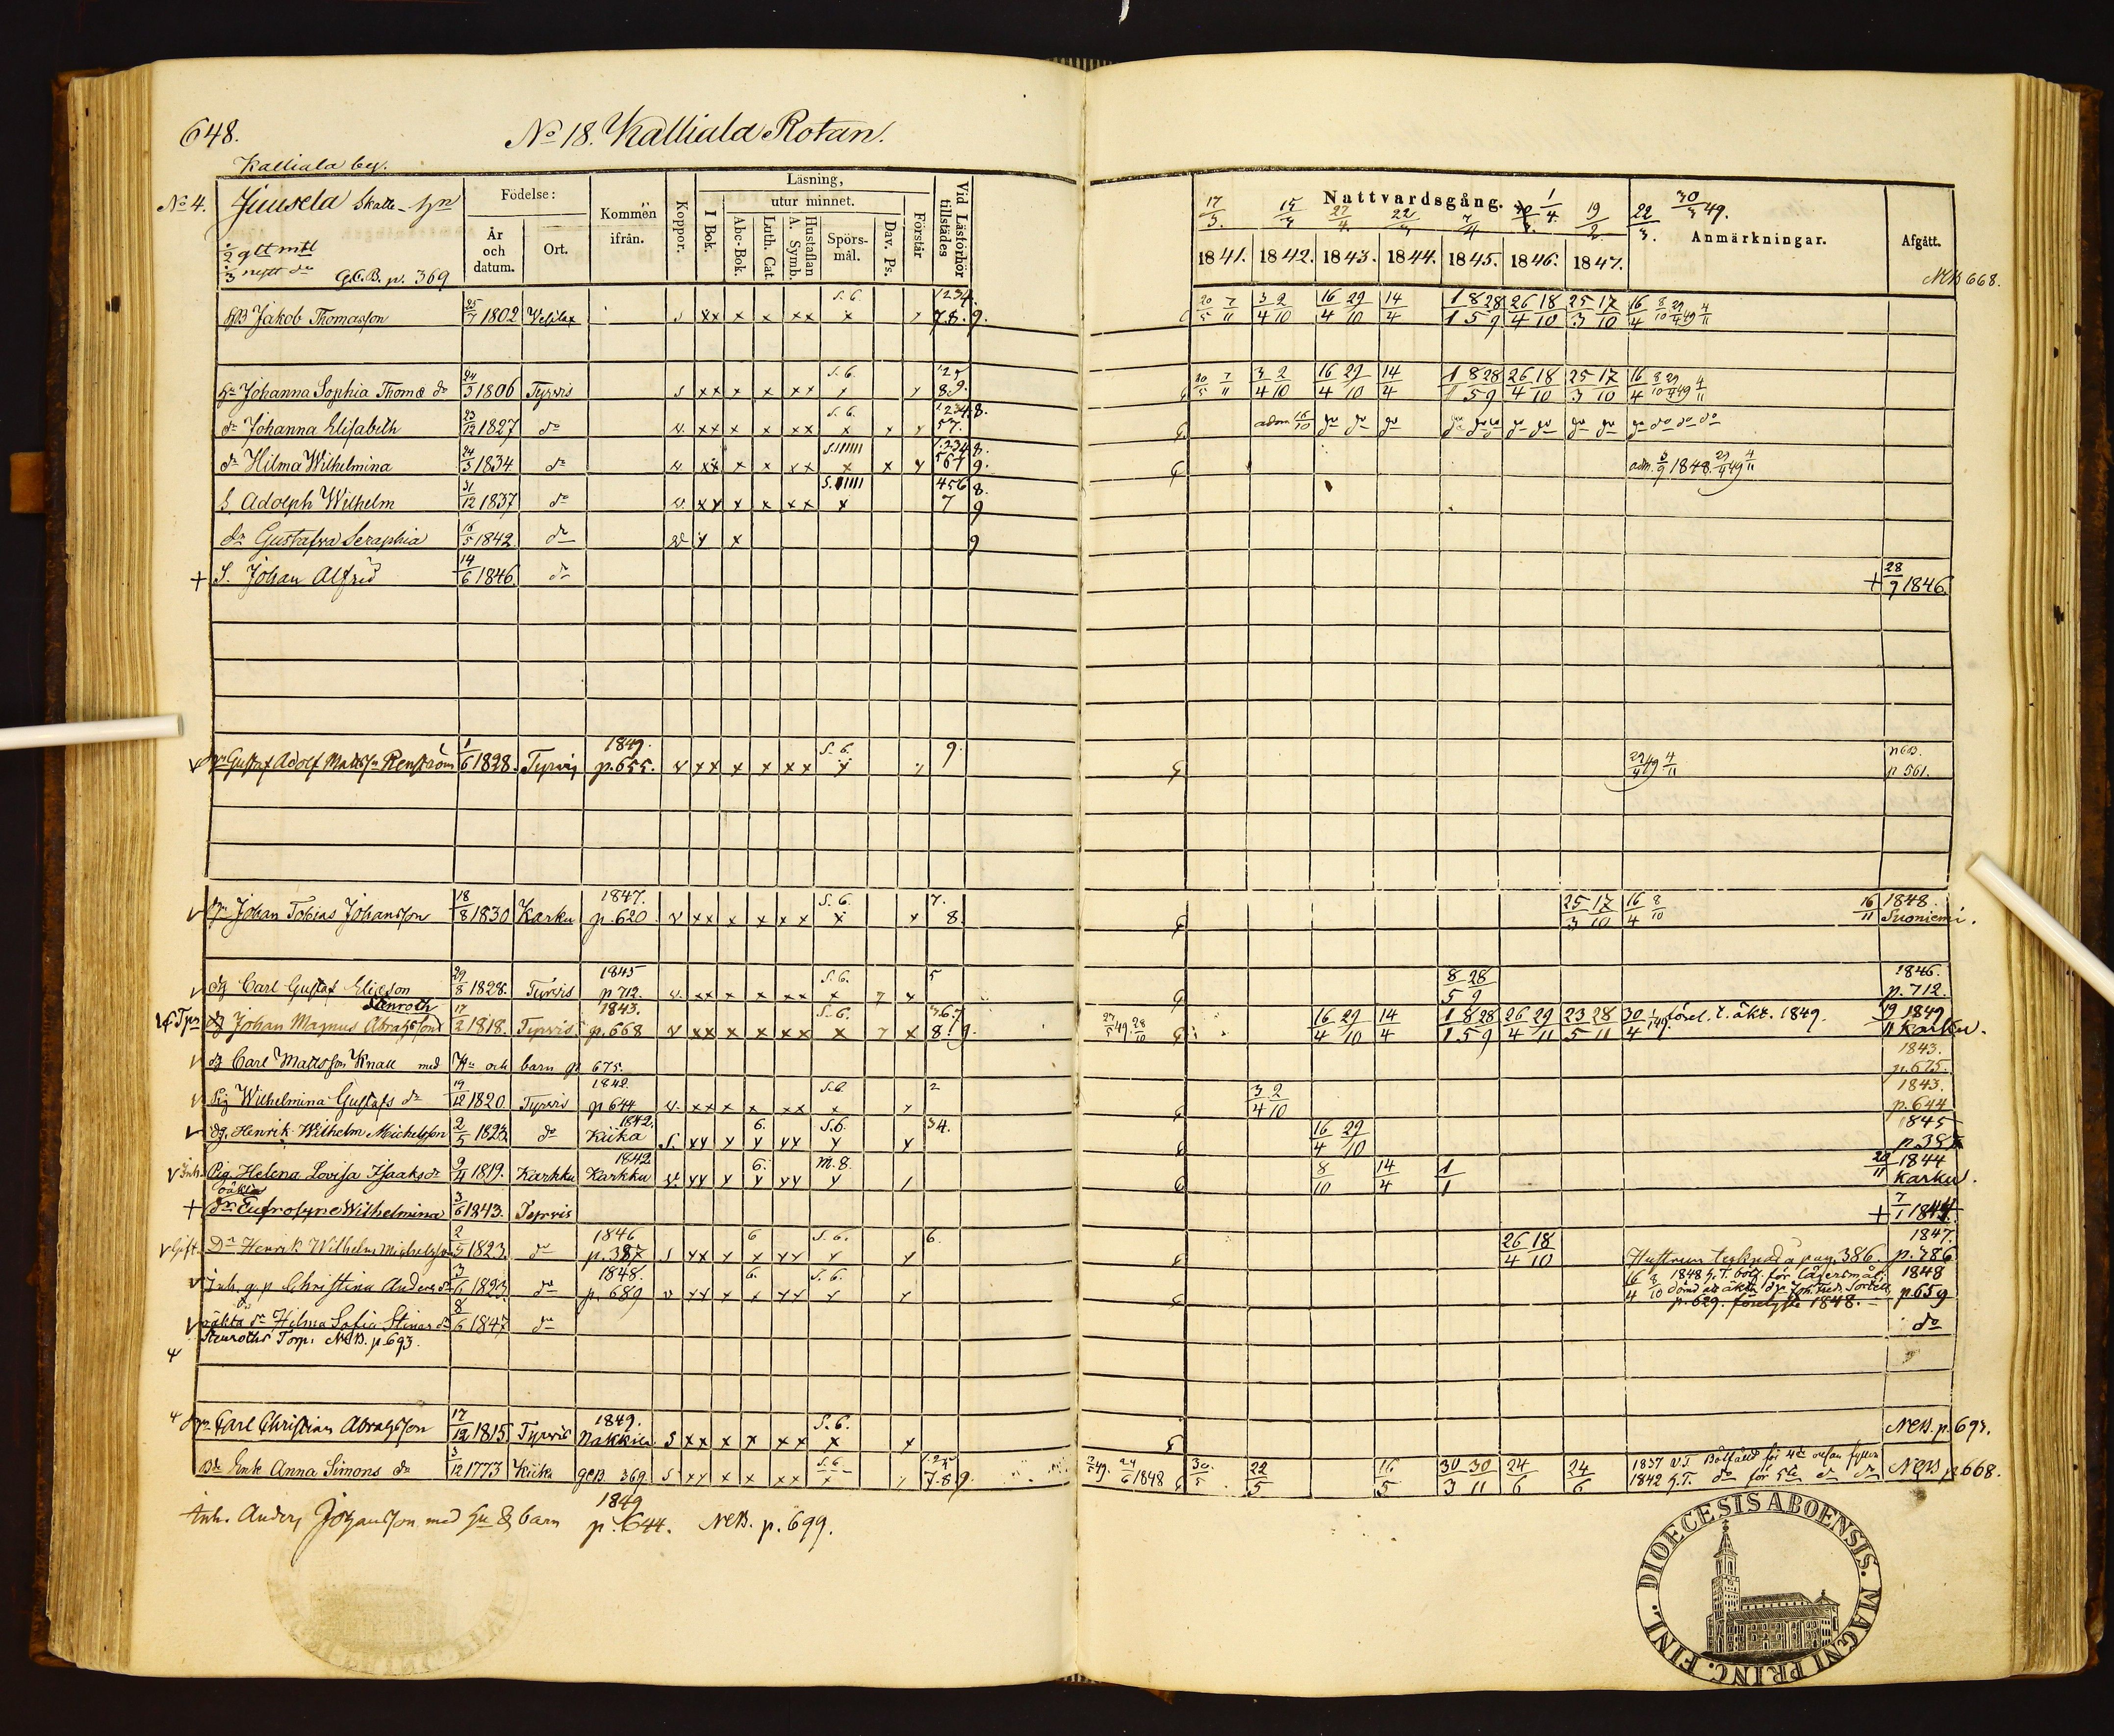 648. No 18. Kalliala Rotan.
Kalliala by.
No 4. Juusela Skatte-hn
1/2 glt mtl
2/3 nytt do G.C.B. p. 369
Födelse: År och datum. Ort. Kommen ifrån. Koppor. Läsning, I Bok. utur minnet. Abc-Bok. Luth. Cat. A. Symb. Hustaflan Spörsmål. Dav. Ps. Förstår Vid Läsförhör tillstädes
Nattvardsgång. 1841. 1842. 1843. 1844. 1845. 1846. 1847. Anmärkningar. 30/3 49. Afgått.
NCB 668.
HB Jakob Thomasson 25/7 1802 s xx x x xx S.6. x 1234. 7.8.9. 20/5 7/11 3/4 2/10 16/4 29/10 14/4 1/1 8/5 28/9 26/4 18/10 25/3 17/10 16/4 8/10 29/4 49 4/11
Hu Johanna Sophia Thomæ dr 24/5 1806 Tyrvis s xx x x xx S.6. 8.9. 20/5 7/11 3/4 2/10 16/4 29/10 14/4 1/1 8/5 28/9 26/4 18/10 25/3 17/10 16/4 8/10 29/4 49 4/11
dr Johanna Elisabeth 23/12 1827 do v. xx x x xx S.6. x 1234.8. 57. adm 16/10 do do do do do do do do do do do do do do
dr Hilma Wilhelmina 24/3 1834 do v. xx x x xx x x 1.234 8. 567 9. adm. 3/9 1848. 29/4 49 4/11
S Adolph Wilhelm 31/12 1837 do v. xx x x xx x 456 8. 7 9
dr Gustafva Seraphia 16/5 1842. do v x x 9
+ S. Johan Alfred 14/6 1846. do + 28/9 1846.
v Gustaf Adolf Mattss. Renström 1/6 1828. Tyrvis 1849. p. 655. v xx x x xx S.6. x 9. 29/4 49 4/11 NCB. p 561.
v Johan Tobias Johansson 18/8 1830 Karku 1847. p. 620. v xx x x xx S.6. x 7. 8. 25/3 17/10 16/4 8/10 16/11 1848. Suoniemi.
v dg Carl Gustaf Elieson 29/8 1828. Tyrvis 1845 p 712. v. xx x x xx S.6. x 5 8/5 28/9 1846. p. 712.
dg Johan Magnus Abrahsson Stenroth 17/2 1818. Tyrvis. 1843. p. 668 v xx x x xx S.6. x 3.6.7. 8.9. 16/4 29/10 14/4 1/1 8/5 28/9 26/4 29/11 23/5 28/11 30/4 1/1 49. förel. t. äkt. 1849. 19/11 1849 Karku.
v dg Carl Mattsson Knall med Hu och barn p 675. 1843. p. 675.
v Pig Wilhelmina Gustafs dr 19/12 1820. Tyrvis 1842. p 644 v. xx x x xx S.6. x 2 3/4 2/10 1843. p. 644
v dg. Henrik Wilhelm Michelsson 2/5 1823. do 1842. Kiika S. xx x 6. x xx S.6. x 34. 16/4 29/10 1845
v Inh. Pig Helena Lovisa Isaksdr 9/4 1819. Karkku 1842 Karkku v. xx x 6. x xx M.8. x 8/10 14/4 1/1 20/11 1844 Karku.
+ oäkta dr Eufrosyne Wilhelmina 3/6 1843. Tyrvis + 7/1 1844.
v Gift. Dr Henrik Wilhelm Michelsson 2/5 1823. do 1846 p. 387 s xx x 6 x xx S.6. x 6. 26/4 18/10 Hustrun tecknad å pag. 386. 1847. p. 786
v Inh. g. p Christina Anders dr 3/6 1823 do 1848. p. 689 v xx x 6. x xx S.6. x 16/4 8/10 1848 h. T. bötf. för lägersmål, dömd att äkta dg. Joh. Fred. p. 629. förelyste 1848. 1848 p 659
v oäkta dr Hilma Sofia Stina dr 8/6 1847 do do
Stenroths Torp. NCB. p 693.
Carl Christian Abrahsson 17/12 1815. Tyrvis 1849. Nakkila S xx x x xx S.6. x NCB. p. 693.
Enk Anna Simons dr 3/12 1773 Kiika GCB. 369. S xx x x xx S.6. x 7.8.9. 24/6 1848 30/5 22/5 16/5 30/3 30/11 24/6 24/6 1837 V.T. Bötfälld för 4de resan fylleri 1842 h.T. do för 5te do do NCB p 668.
Inh. Anders Johansson med Hu & barn 1849 p. 644. NCB. p. 699.
DIOECESIS ABOENSIS. MAGNI PRINC. FINL.